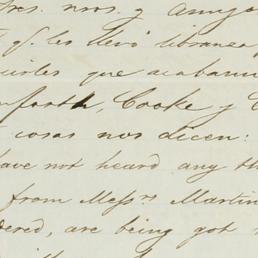 nros. y Amigo
qe. les llevó libranza
que acabam
forth, Cooke y C
cosas nos dicen:
have not heard any th
from Messrs Martin
dered, are being got